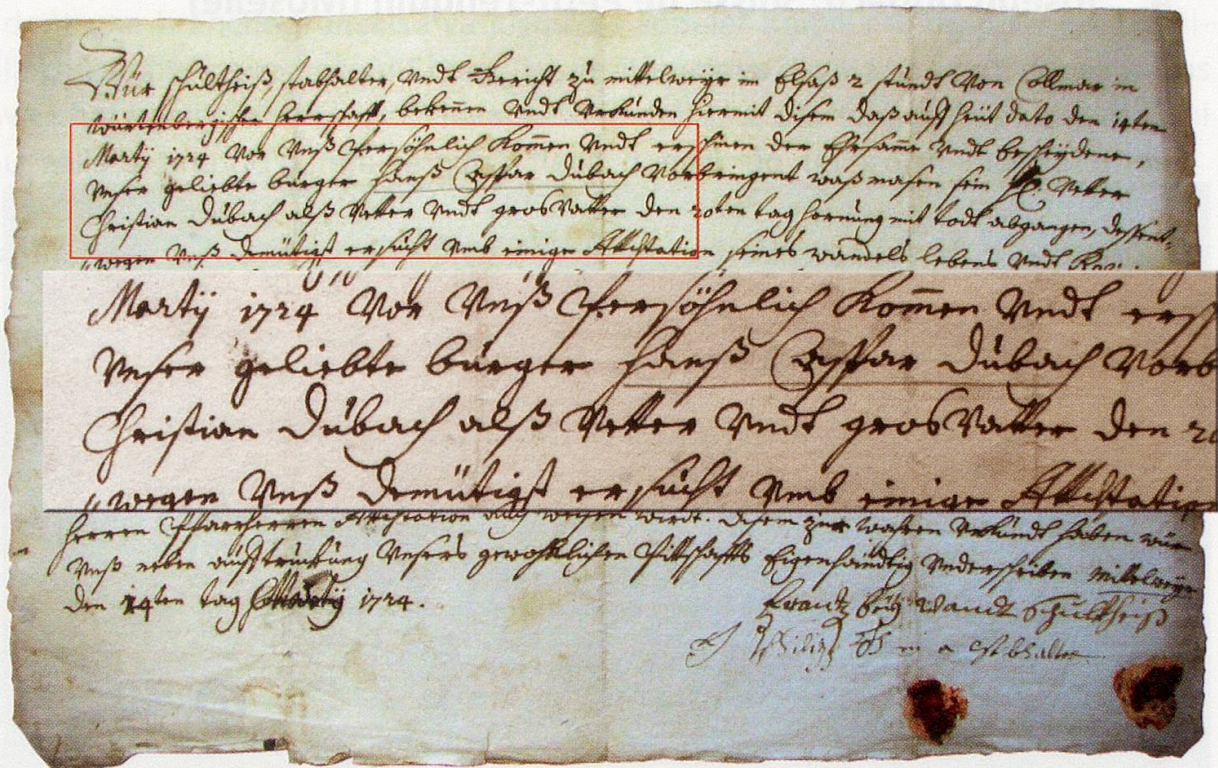 Wür Schultheiß, stabhalter, Undt Gericht zu mittelweyr im Elsaß 2 stundt Von Collmar in
würtenbergischer Herrschafft, bekennen Undt Urkunden hiermit disem daß auff heüt dato den 14ten
Martÿ 1724 Vor Unß Persöhnlich Kom̅en Undt erschinen der Ehrsam̅e Undt bescheydene,
Unser geliebte burger Hanß Casspar Dübach Vorbringent waß masen sein Vetter
Christian Dübach alß Vetter Undt grosVatter den 20ten tag Hornung mit todt abgangen, dessent-
„wegen Unß demütigst ersucht Umb einige Attestation seines wandels lebens Undt
Martÿ 1724 Vor Unß Persöhnlich Kom̅en Undt ersch
Unser geliebte burger Hanß Casspar Dübach Vorb
Christian Dübach alß Vetter Undt grosVatter den 20
„wegen Unß demütigst ersucht Umb einige Attestatio
Herren Pfarrherren Attestation wirdt. disem zur wahren Urkundt haben wür
Unß neben auffstruckung Unsers gewohnlichen Pittschaffts Eigenhändig Underschriben Mittelweyr
den 14ten tag Martÿ 1724.
Frantz Schultheiß
Philipp stabhalter